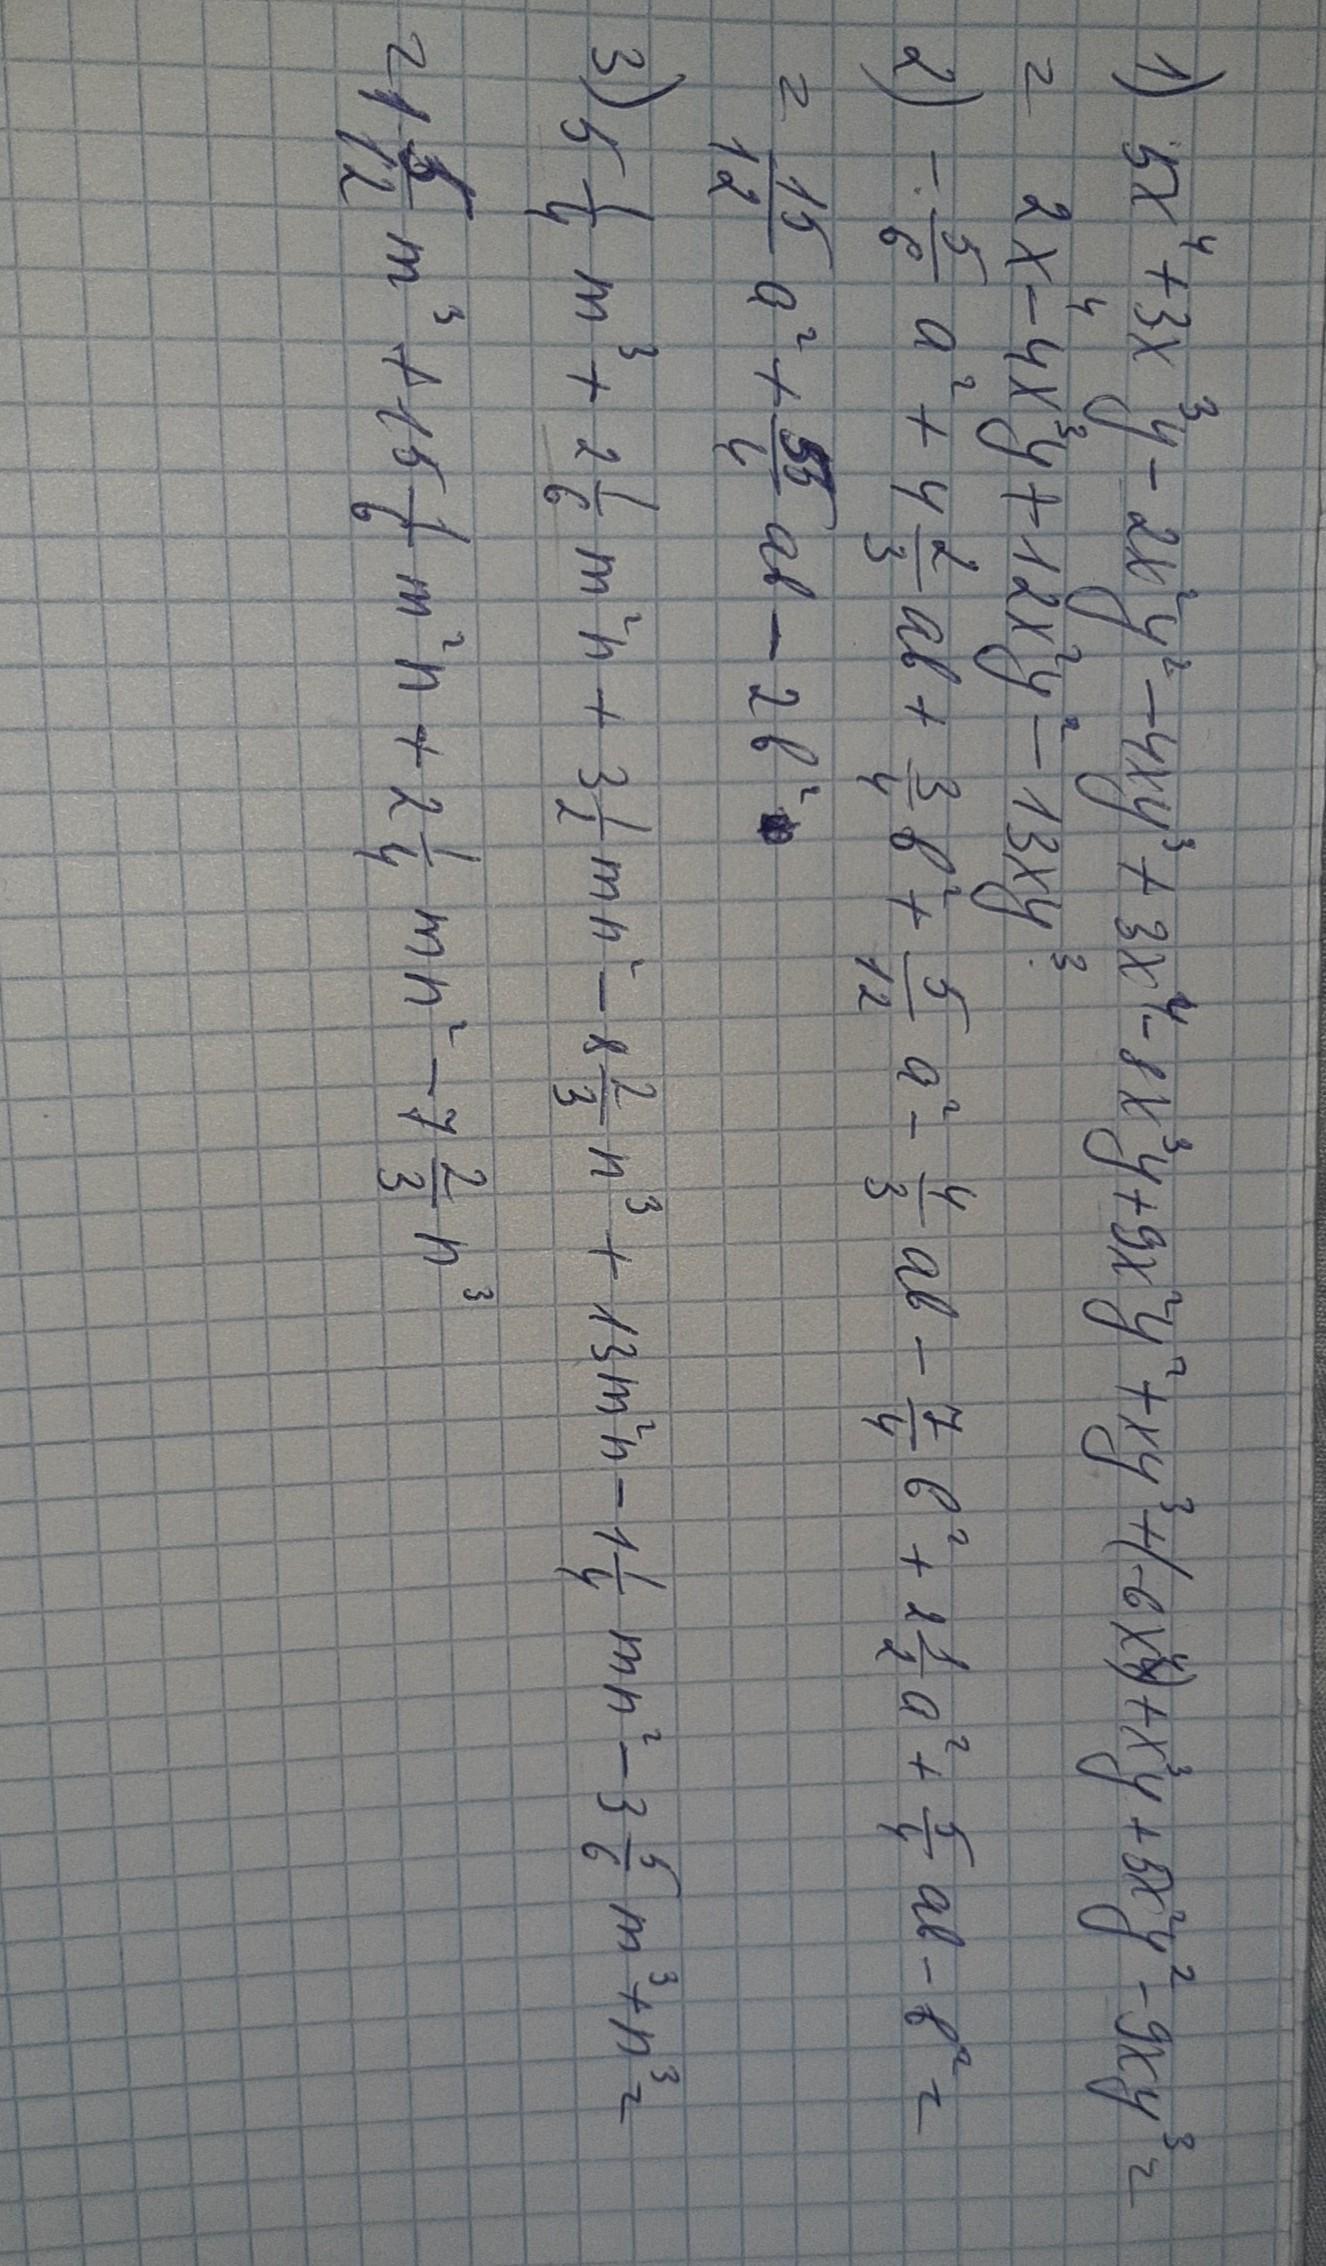 1) 5x⁴ + 3x³y - 2x²y² - 4xy³ + 3x⁴ - 8x³y + 9x²y² + xy³ + (-6x⁴) + x³y + 5x²y² - 9xy³ =
= 2x⁴ - 4x³y + 12x²y² - 13xy³
2) - 5/6 a² + 4 2/3 ab + 3/4 b² + 5/12 a² - 4/3 ab - 7/4 b² + 2 1/2 a² + 5/4 ab - b² =
= 15/12 a² + 55/4 ab - 2b²
3) 5 1/4 m³ + 2 1/6 m²n + 3 1/2 mn² - 8 2/3 n³ + 13m²n - 1 1/4 mn² - 3 5/6 m³ + n³ =
= 1 5/12 m³ + 15 1/6 m²n + 2 1/4 mn² - 7 2/3 n³